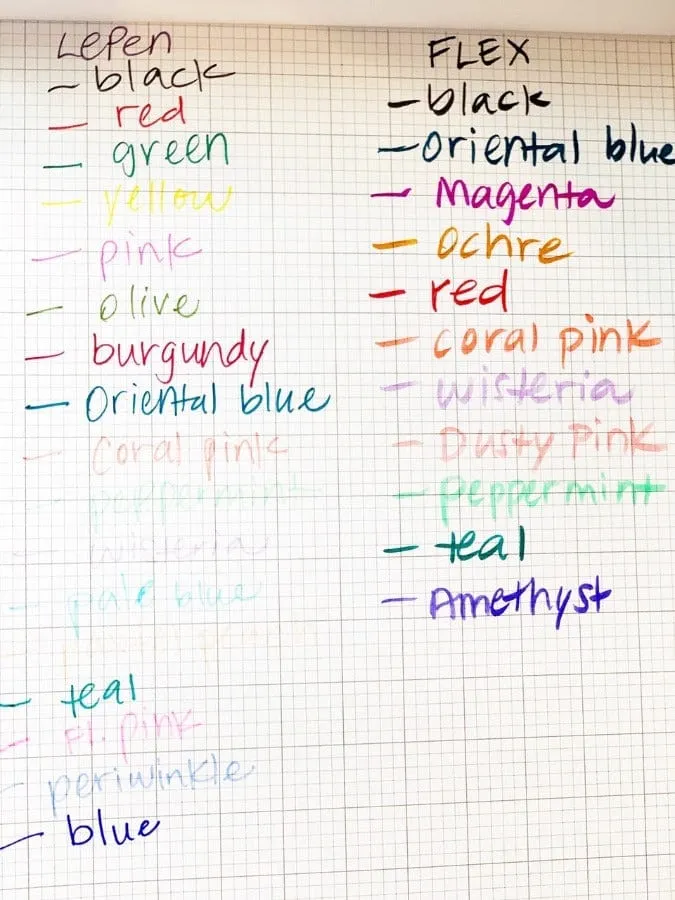 LePen
- black
- red
- green
- yellow
- pink
- olive
- burgundy
- Oriental blue
- Coral pink
- peppermint
- wisteria
- pale blue
- teal
- Fl. pink
- periwinkle
- blue
FLEX
- black
- Oriental blue
- Magenta
- Ochre
- red
- coral pink
- wisteria
- Dusty Pink
- peppermint
- teal
- Amethyst